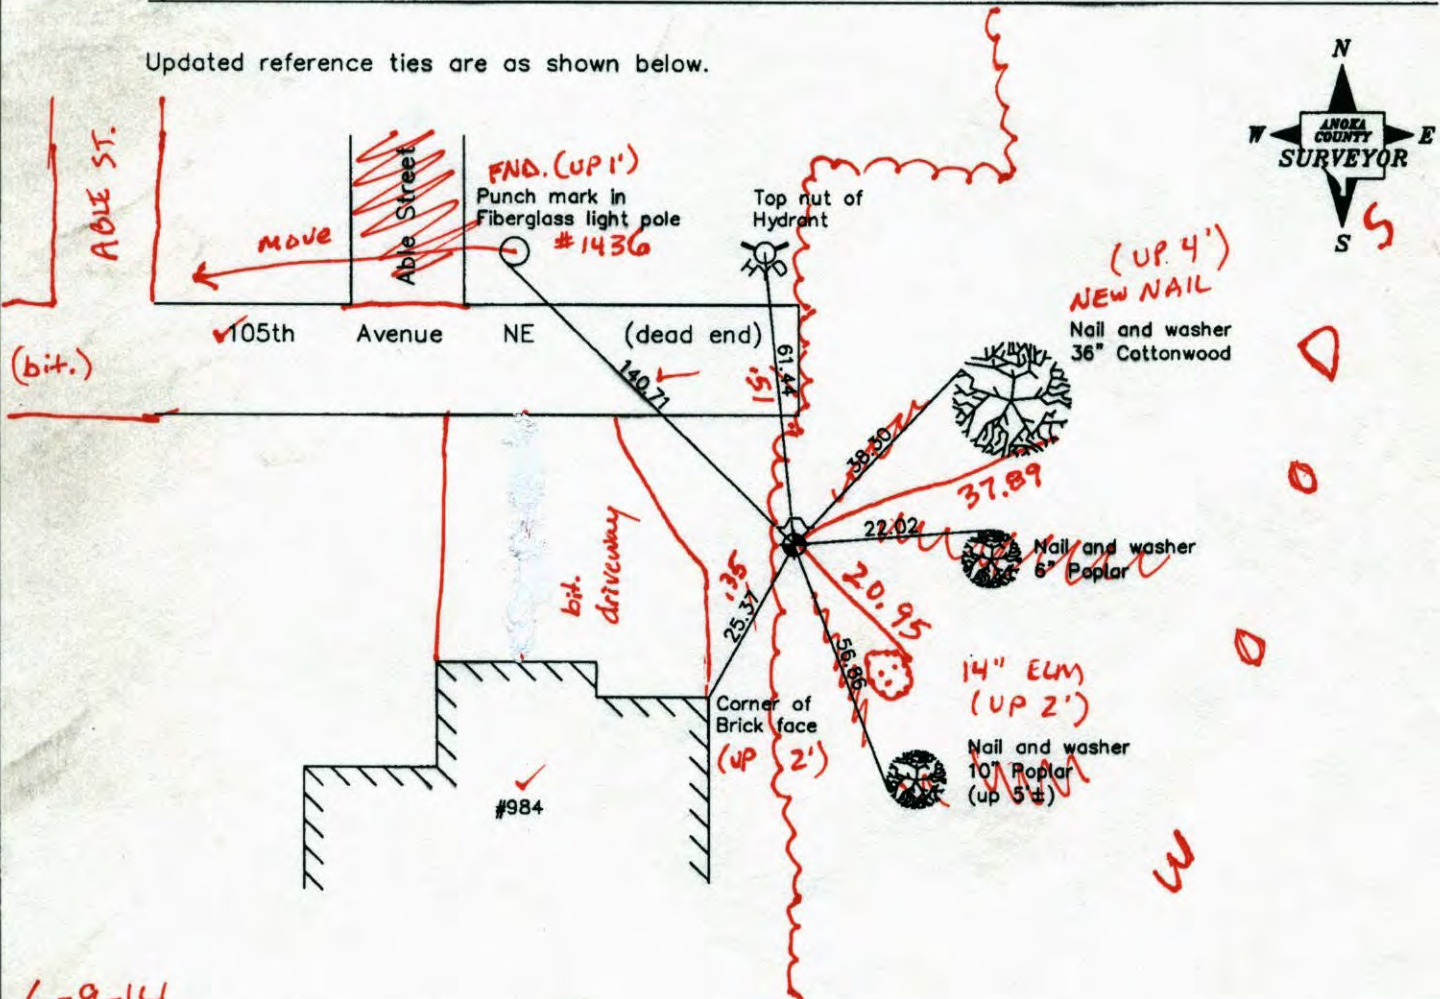 Updated reference ties are as shown below.
N
W
E
ANOKA
COUNTY
SURVEYOR
S
ABLE ST.
Able Street
FND. (UP 1')
Punch mark in
Fiberglass light pole
#1436
MOVE
Top nut of
Hydrant
HYD
(UP 4')
NEW NAIL
Nail and washer
36" Cottonwood
105th Avenue NE (dead end)
(bit.)
140.71
61.44
.51
38.30
37.89
22.02
Nail and washer
6" Poplar
20.95
bit.
driveway
.35
25.37
56.86
14" ELM
(UP 2')
Corner of
Brick face
(UP 2')
Nail and washer
10" Poplar
(up 5'±)
#984
S
D
O
O
W
6-9-14